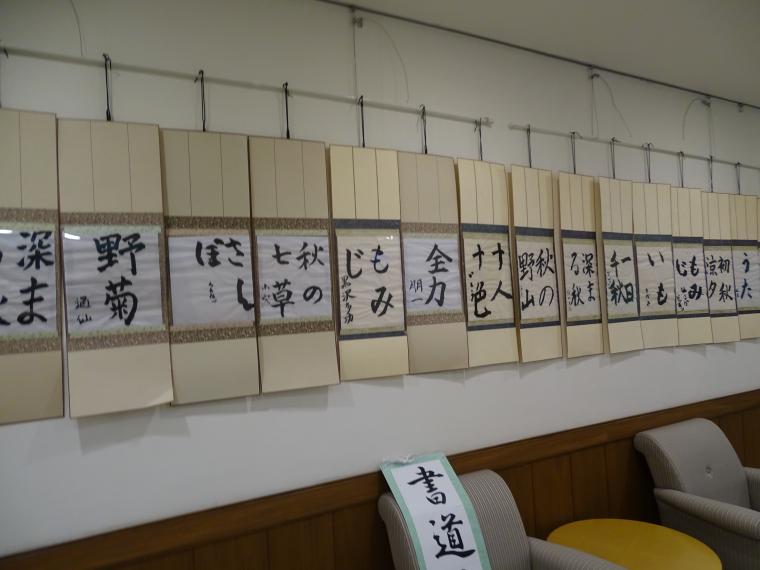 深ま
る秋
野菊
さん
ぽ
秋の
七草
もみ
じ
全力
明一
十人
十色
秋の
野山
深ま
る秋
一日
千秋
いも
もみ
じ
初秋
涼夕
うた
書道